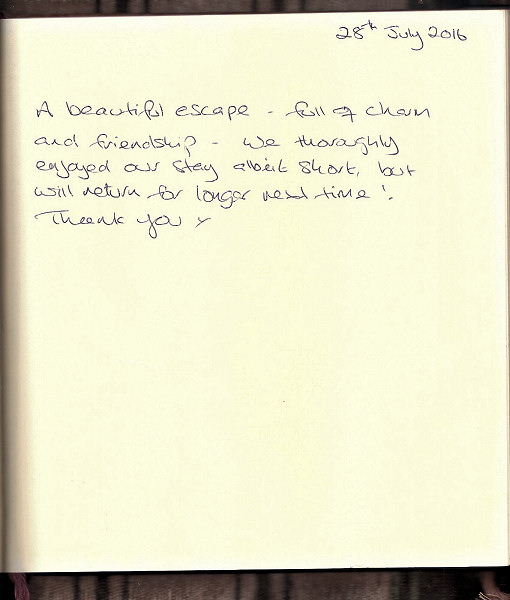 28th July 2016
A beautiful escape - full of charm
and friendship - we thoroughly
enjoyed our stay albeit short, but
will return for longer next time!
Thank you x